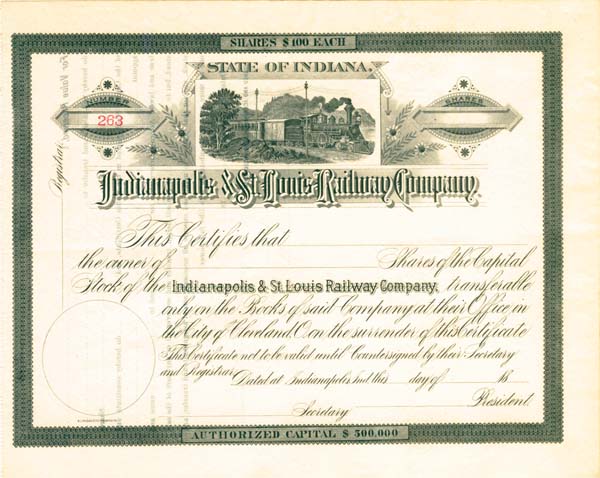 SHARES $100 EACH
STATE OF INDIANA.
NUMBER
SHARES
263
Registrar
Indianapolis & St. Louis Railway Company.
This Certifies that
the owner of Shares of the Capital
Stock of the Indianapolis & St. Louis Railway Company, transferable
only on the Books of said Company at their Office in
the City of Cleveland, O. on the surrender of this Certificate
This Certificate not to be valid until Countersigned by their Secretary
and Registrar.
Dated at Indianapolis Ind. this day of 18
President
Secretary
AUTHORIZED CAPITAL $ 500,000